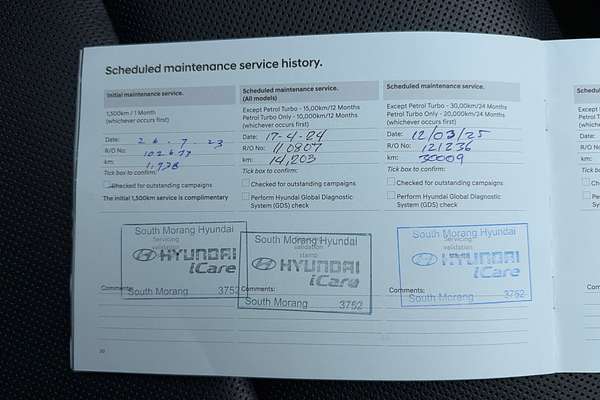 Scheduled maintenance service history.
Initial maintenance service.
1,500km / 1 Month
(whichever occurs first)
Date: 26.7.23
R/O No: 102677
km: 1,738
Tick box to confirm:
Checked for outstanding campaigns
The initial 1,500km service is complimentary
South Morang Hyundai
Servicing
validation
HYUNDAI
iCare
South Morang 3752
Comments:
Scheduled maintenance service.
(All models)
Except Petrol Turbo - 15,00km/12 Months
Petrol Turbo Only - 10,000km/12 Months
(whichever occurs first)
Date: 17-4-24
R/O No: 110807
km: 14,203
Tick box to confirm:
Checked for outstanding campaigns
Perform Hyundai Global Diagnostic
System (GDS) check
South Morang Hyundai
validation
stamp
HYUNDAI
iCare
South Morang 3752
Comments:
Scheduled maintenance service.
Except Petrol Turbo - 30,00km/24 Months
Petrol Turbo Only - 20,000km/24 Months
(whichever occurs first)
Date: 12/03/25
R/O No: 121236
km: 30009
Tick box to confirm:
Checked for outstanding campaigns
Perform Hyundai Global Diagnostic
System (GDS) check
South Morang Hyundai
Servicing
validation
HYUNDAI
iCare
South Morang 3752
Comments: